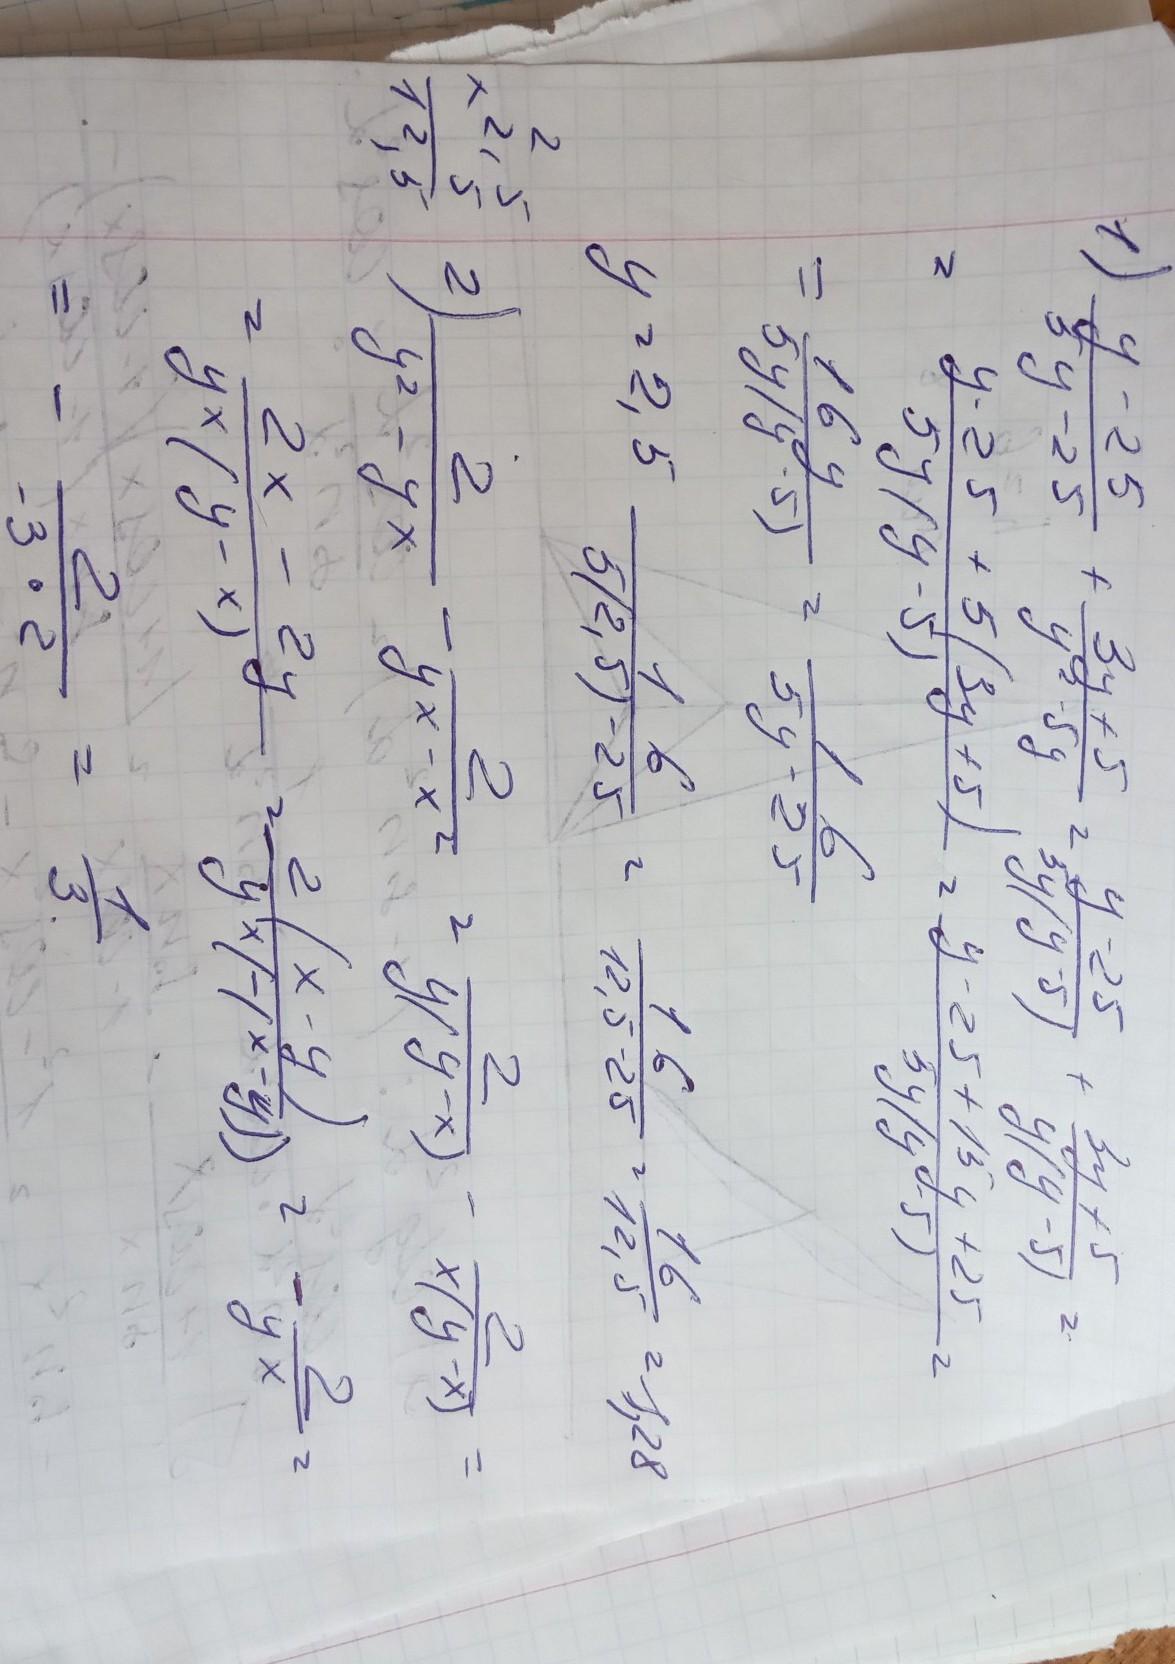 1) (y - 25)/(5y - 25) + (3y + 5)/(y² - 5y) = (y - 25)/(5y(y - 5)) + (3y + 5)/(y(y - 5)) =
= (y - 25 + 5(3y + 5))/(5y(y - 5)) = (y - 25 + 15y + 25)/(5y(y - 5)) =
= 16y/(5y(y - 5)) = 16/(5y - 25)
y = 2,5 16/(5(2,5) - 25) = 16/(12,5 - 25) = 16/12,5 = 1,28
2
2,5
× 5
12,5
2) 2/(y² - yx) - 2/(yx - x²) = 2/(y(y - x)) - 2/(x(y - x)) =
= (2x - 2y)/(yx(y - x)) = 2(x - y)/(yx(-(x - y))) = - 2/(yx) =
= - 2/(-3 · 2) = 1/3